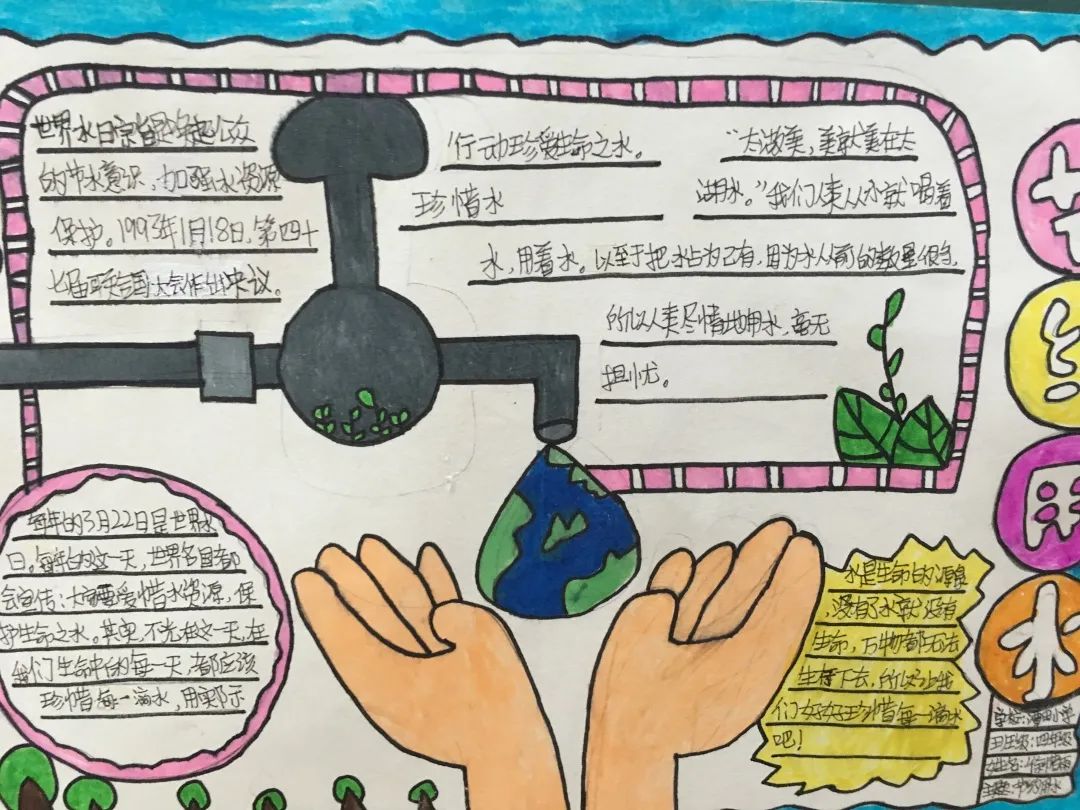 世界水日宗旨是唤起公众
的节水意识，加强水资源
保护。1993年1月18日，第四十
七届联合国大会作出决议。
行动珍爱生命之水。
珍惜水
“太湖美，美就美在太
湖水。”我们人类从小就喝着
水，用着水。以至于把水占为己有，因为水从前的数量很多
所以人类尽情地用水，毫无
担忧。
节
约
用
水
每年的3月22日是世界水
日。每年的这一天，世界各国都
会宣传：大家要爱惜水资源，保
护生命之水。其实，不光在这一天，在
我们生命中的每一天，都应该
珍惜每一滴水，用实际
水是生命的源泉
没有了水就没有
生命，万物都无法
生存下去，所以让我
们好好珍惜每一滴水
吧！
学校：小学
班级：四年级
姓名：
主题：节约用水